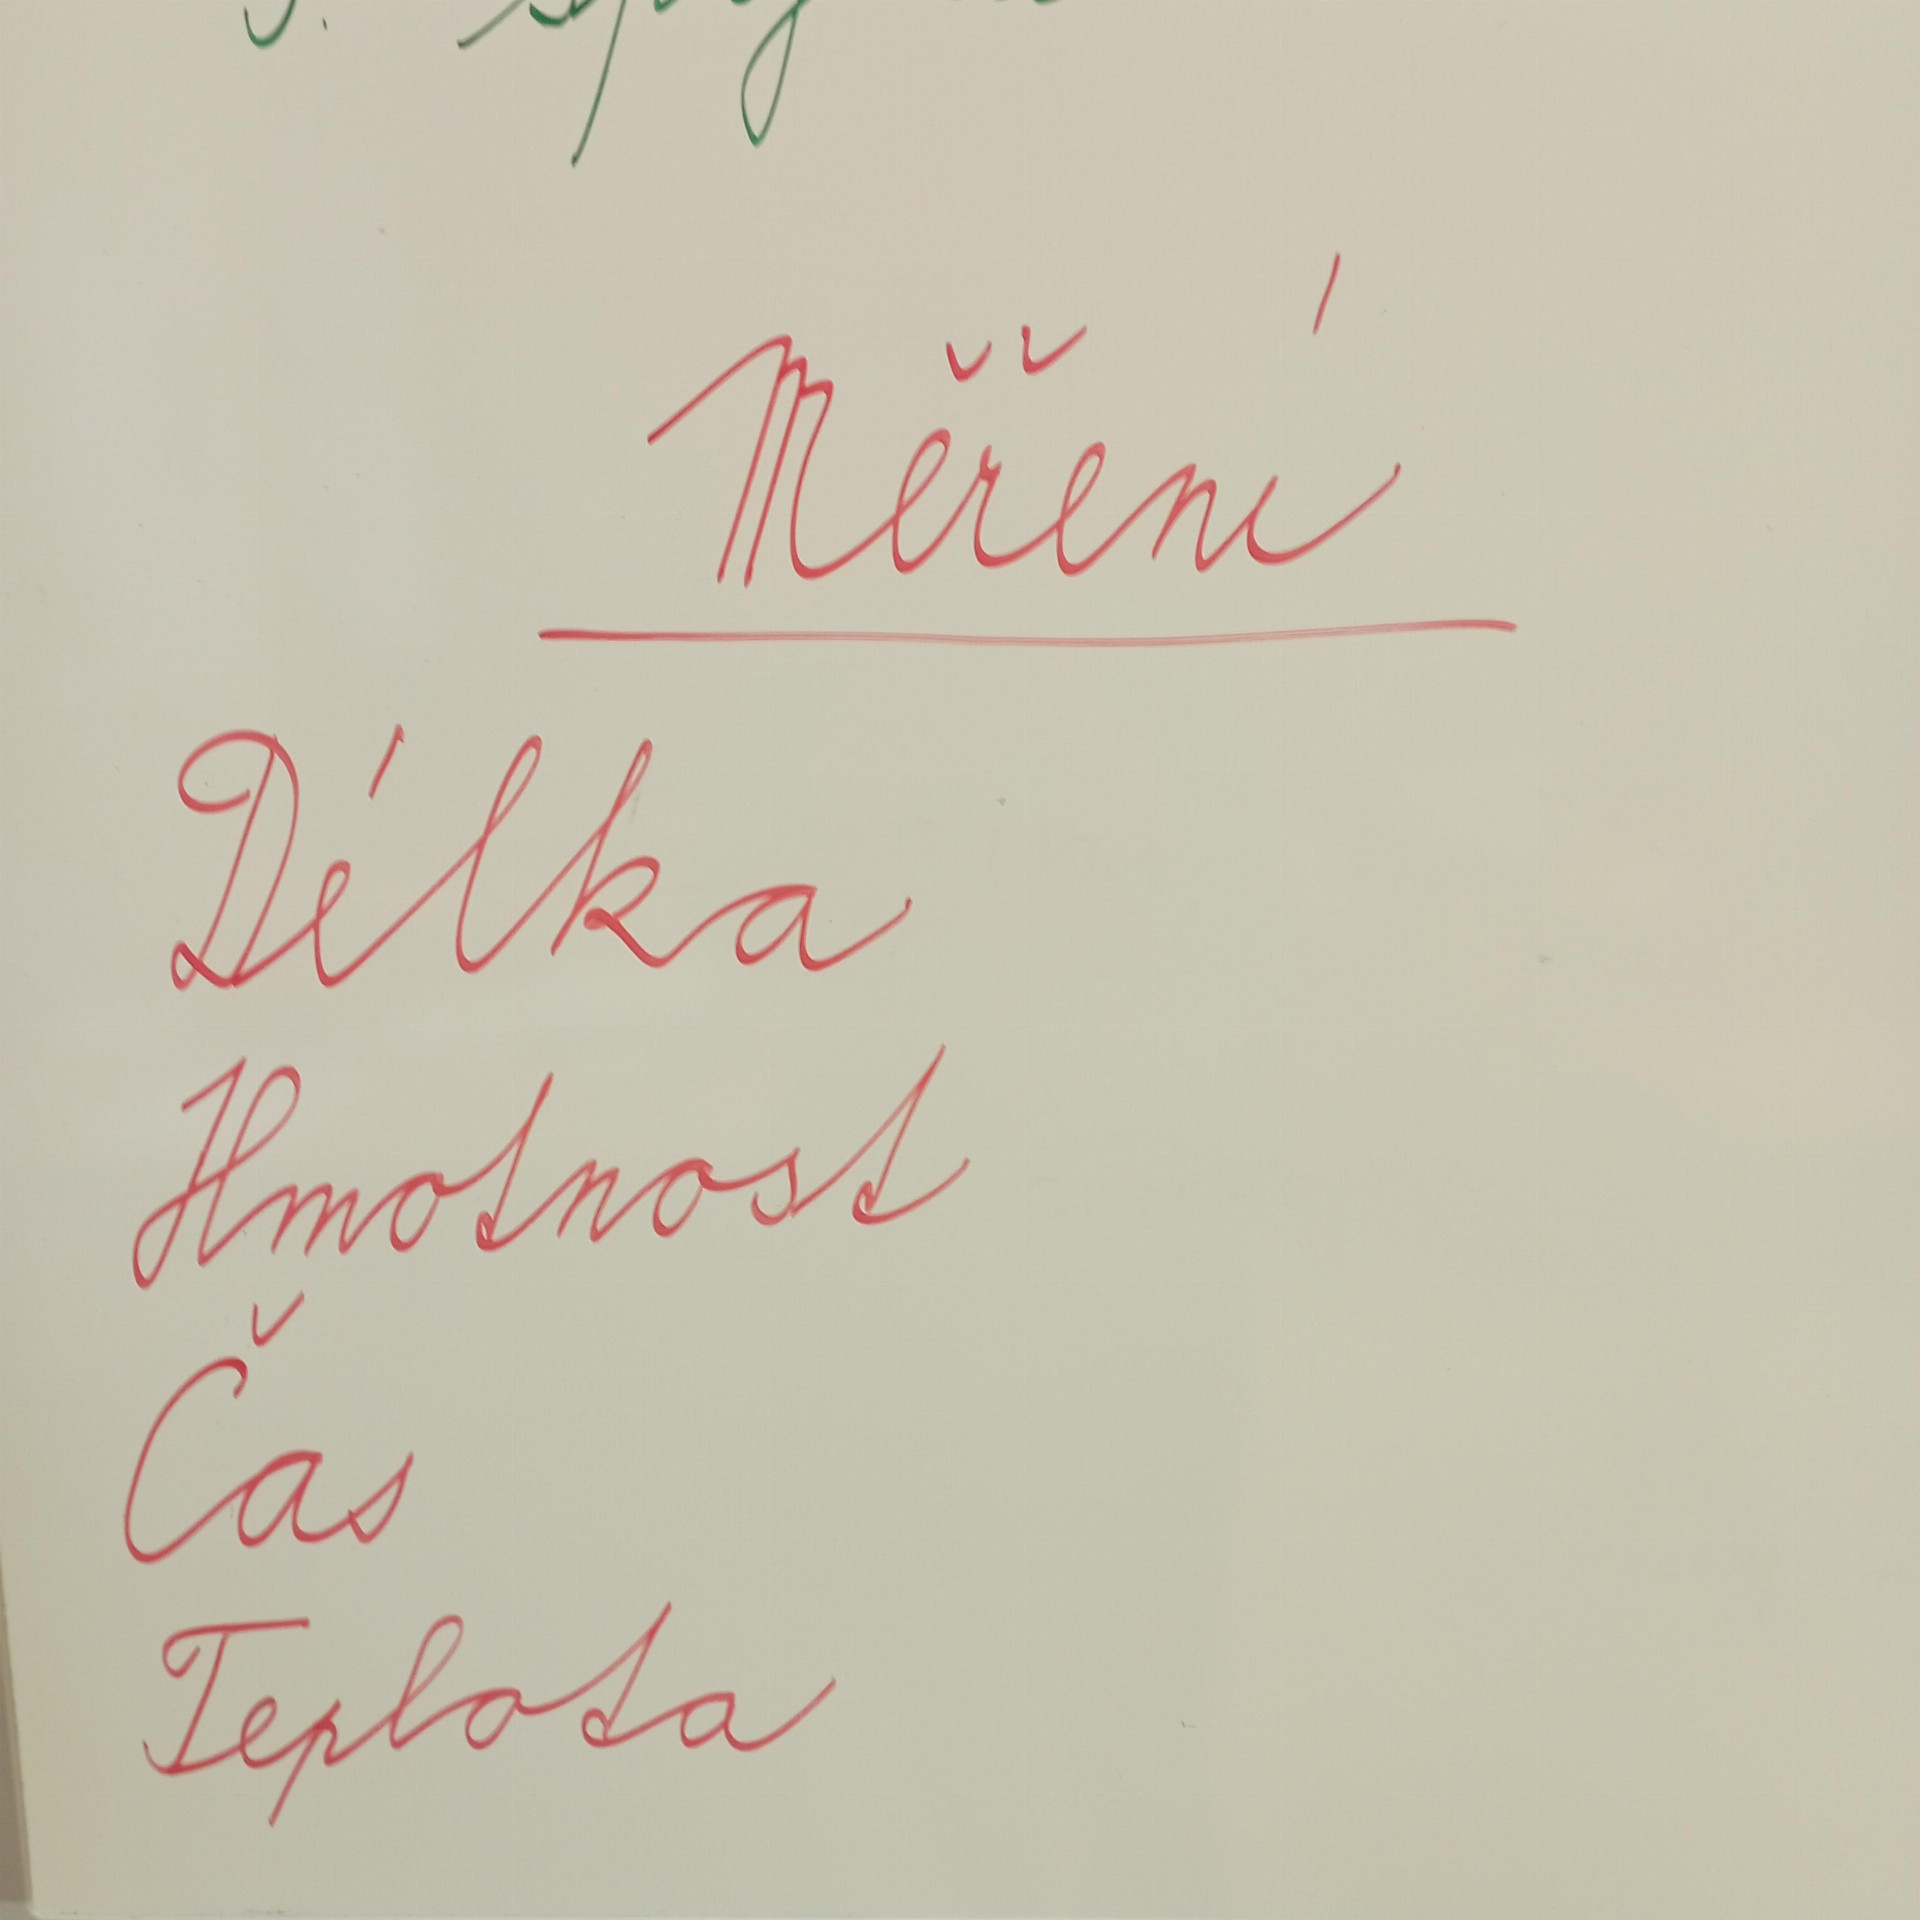 Měření
Délka
Hmotnost
Čas
Teplota